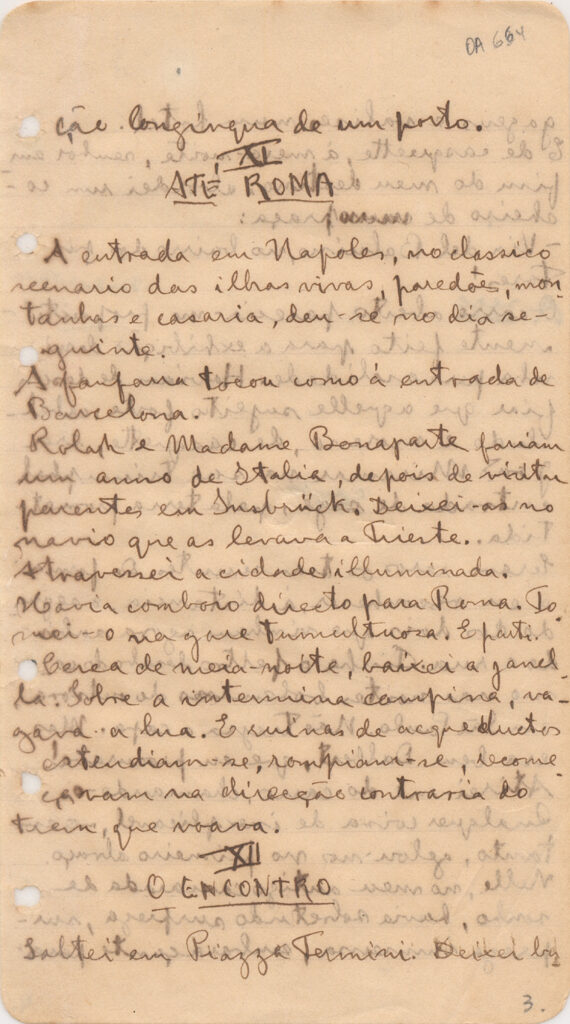 OA 664
ção longinqua de um porto.
XI
ATÉ ROMA
A entrada em Napoles, no classico
scenario das ilhas vivas, paredões, mon-
tanhas e casaria, deu-se no dia se-
guinte.
A fanfarra tocou como á entrada de
Barcelona.
Rolah e Madame Bonaparte fariam
um anno de Italia, depois de visitar
parentes em Insbrück. Deixei-as no
navio que as levava a Trieste.
Atravessei a cidade illuminada.
Havia comboio directo para Roma. To
mei-o na gare tumultuosa. E parti.
Cerca de meia-noite, baixei a janel
la. Sobre a intermina campina, va-
gava a lua. E ruinas de acqueductos
estendiam-se, rompiam-se, recome
çavam na direcção contraria do
trem, que voava.
XII
O ENCONTRO
Saltei em Piazza Termini. Deixei
3.